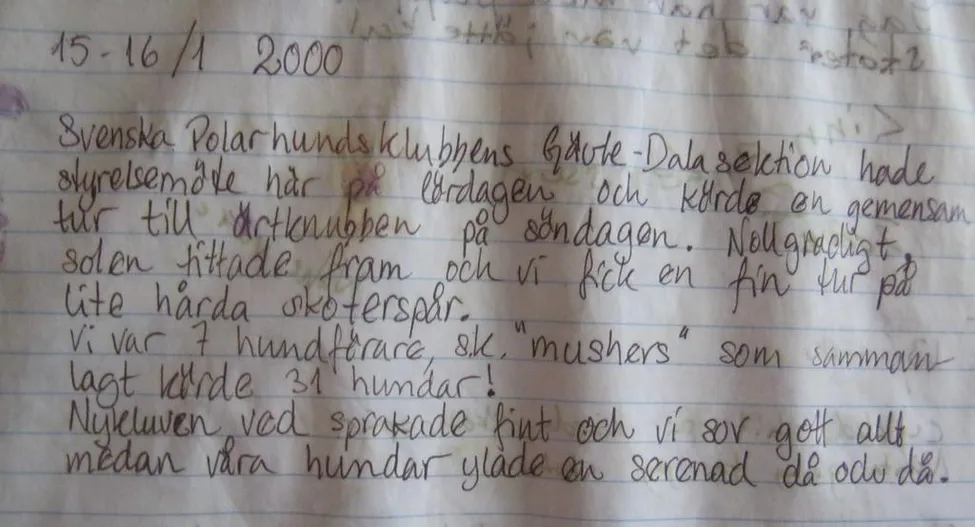 15-16/1 2000
Svenska Polarhundsklubbens Gävle-Dalasektion hade
styrelsemöte här på lördagen och körde en gemensam
tur till Örtknubben på söndagen. Nollgradigt,
solen tittade fram och vi fick en fin tur på
lite hårda skoterspår.
Vi var 7 hundförare, sk. "mushers" som samman-
lagt körde 31 hundar!
Nykluven ved sprakade fint och vi sov gott allt
medan våra hundar ylade en serenad då och då.